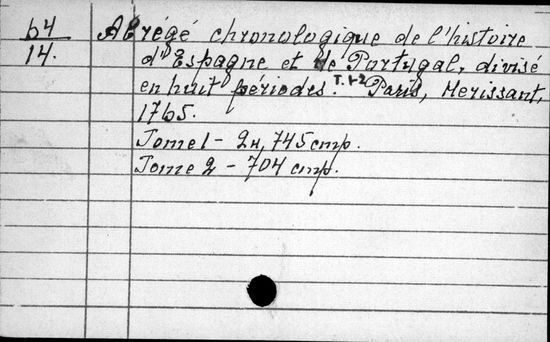 64
14.
Abrégé chronologique de l'histoire
d'Espagne et de Portugal, divisé
en huit périodes. T.1-2 Paris, Herissant,
1765.
Tome 1 - 2н, 745 стр.
Tome 2 - 704 стр.